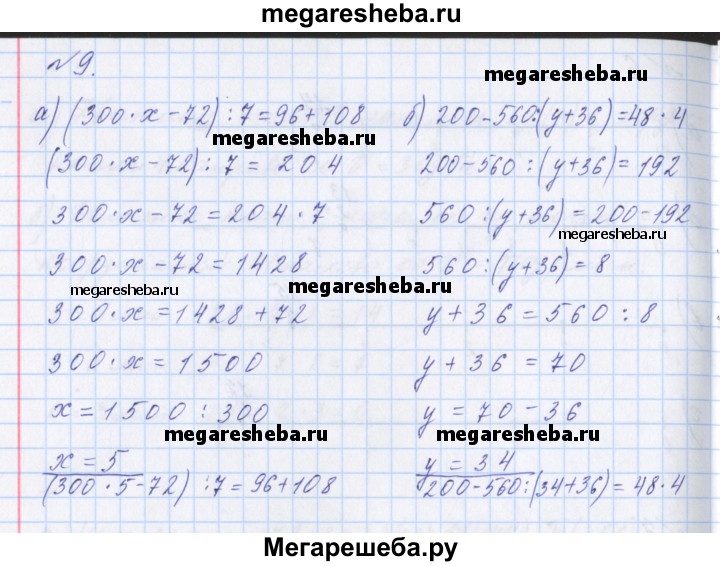 megaresheba.ru
№9.
megaresheba.ru
а) (300·x-72):7=96+108
б) 200-560:(y+36)=48·4
megaresheba.ru
(300·x-72):7=204
200-560:(y+36)=192
300·x-72=204·7
560:(y+36)=200-192
megaresheba.ru
300·x-72=1428
560:(y+36)=8
megaresheba.ru
megaresheba.ru
300·x=1428+72
y+36=560:8
300·x=1500
y+36=70
x=1500:300
y=70-36
megaresheba.ru
megaresheba.ru
x=5
y=34
(300·5-72):7=96+108
200-560:(34+36)=48·4
Мегарешеба.ру